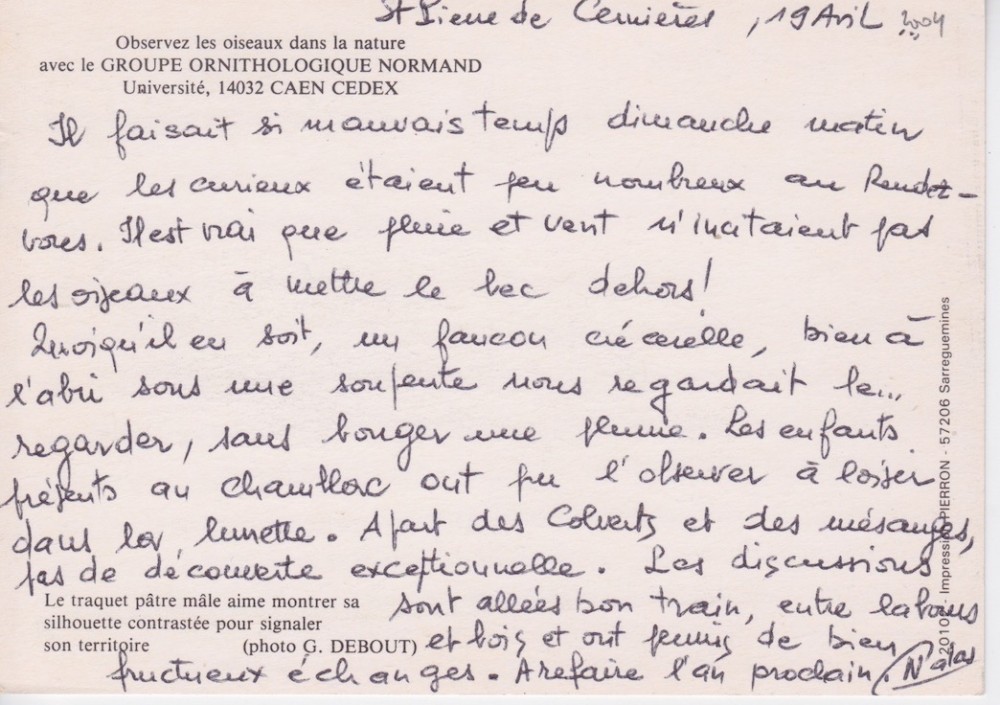 St Pierre de Cernières, 19 Avril 2004
Observez les oiseaux dans la nature
avec le GROUPE ORNITHOLOGIQUE NORMAND
Université, 14032 CAEN CEDEX
Il faisait si mauvais temps dimanche matin
que les curieux étaient peu nombreux au Rendez-
vous. Il est vrai que pluie et vent n'incitaient pas
les oiseaux à mettre le bec dehors!
Quoiqu'il en soit, un faucon crécerelle, bien à
l'abri sous une soupente nous regardait le...
regarder, sans bouger une plume. Les enfants
présents au chambloc ont pu l'observer à loisir
dans la lunette. A part des Colverts et des mésanges,
pas de découverte exceptionnelle. Les discussions
Le traquet pâtre mâle aime montrer sa
silhouette contrastée pour signaler
son territoire (photo G. DEBOUT)
sont allées bon train, entre labours
et bois et ont permis de bien
fructueux échanges. A refaire l'an prochain.
20109 Impression PIERRON - 57206 Sarreguemines